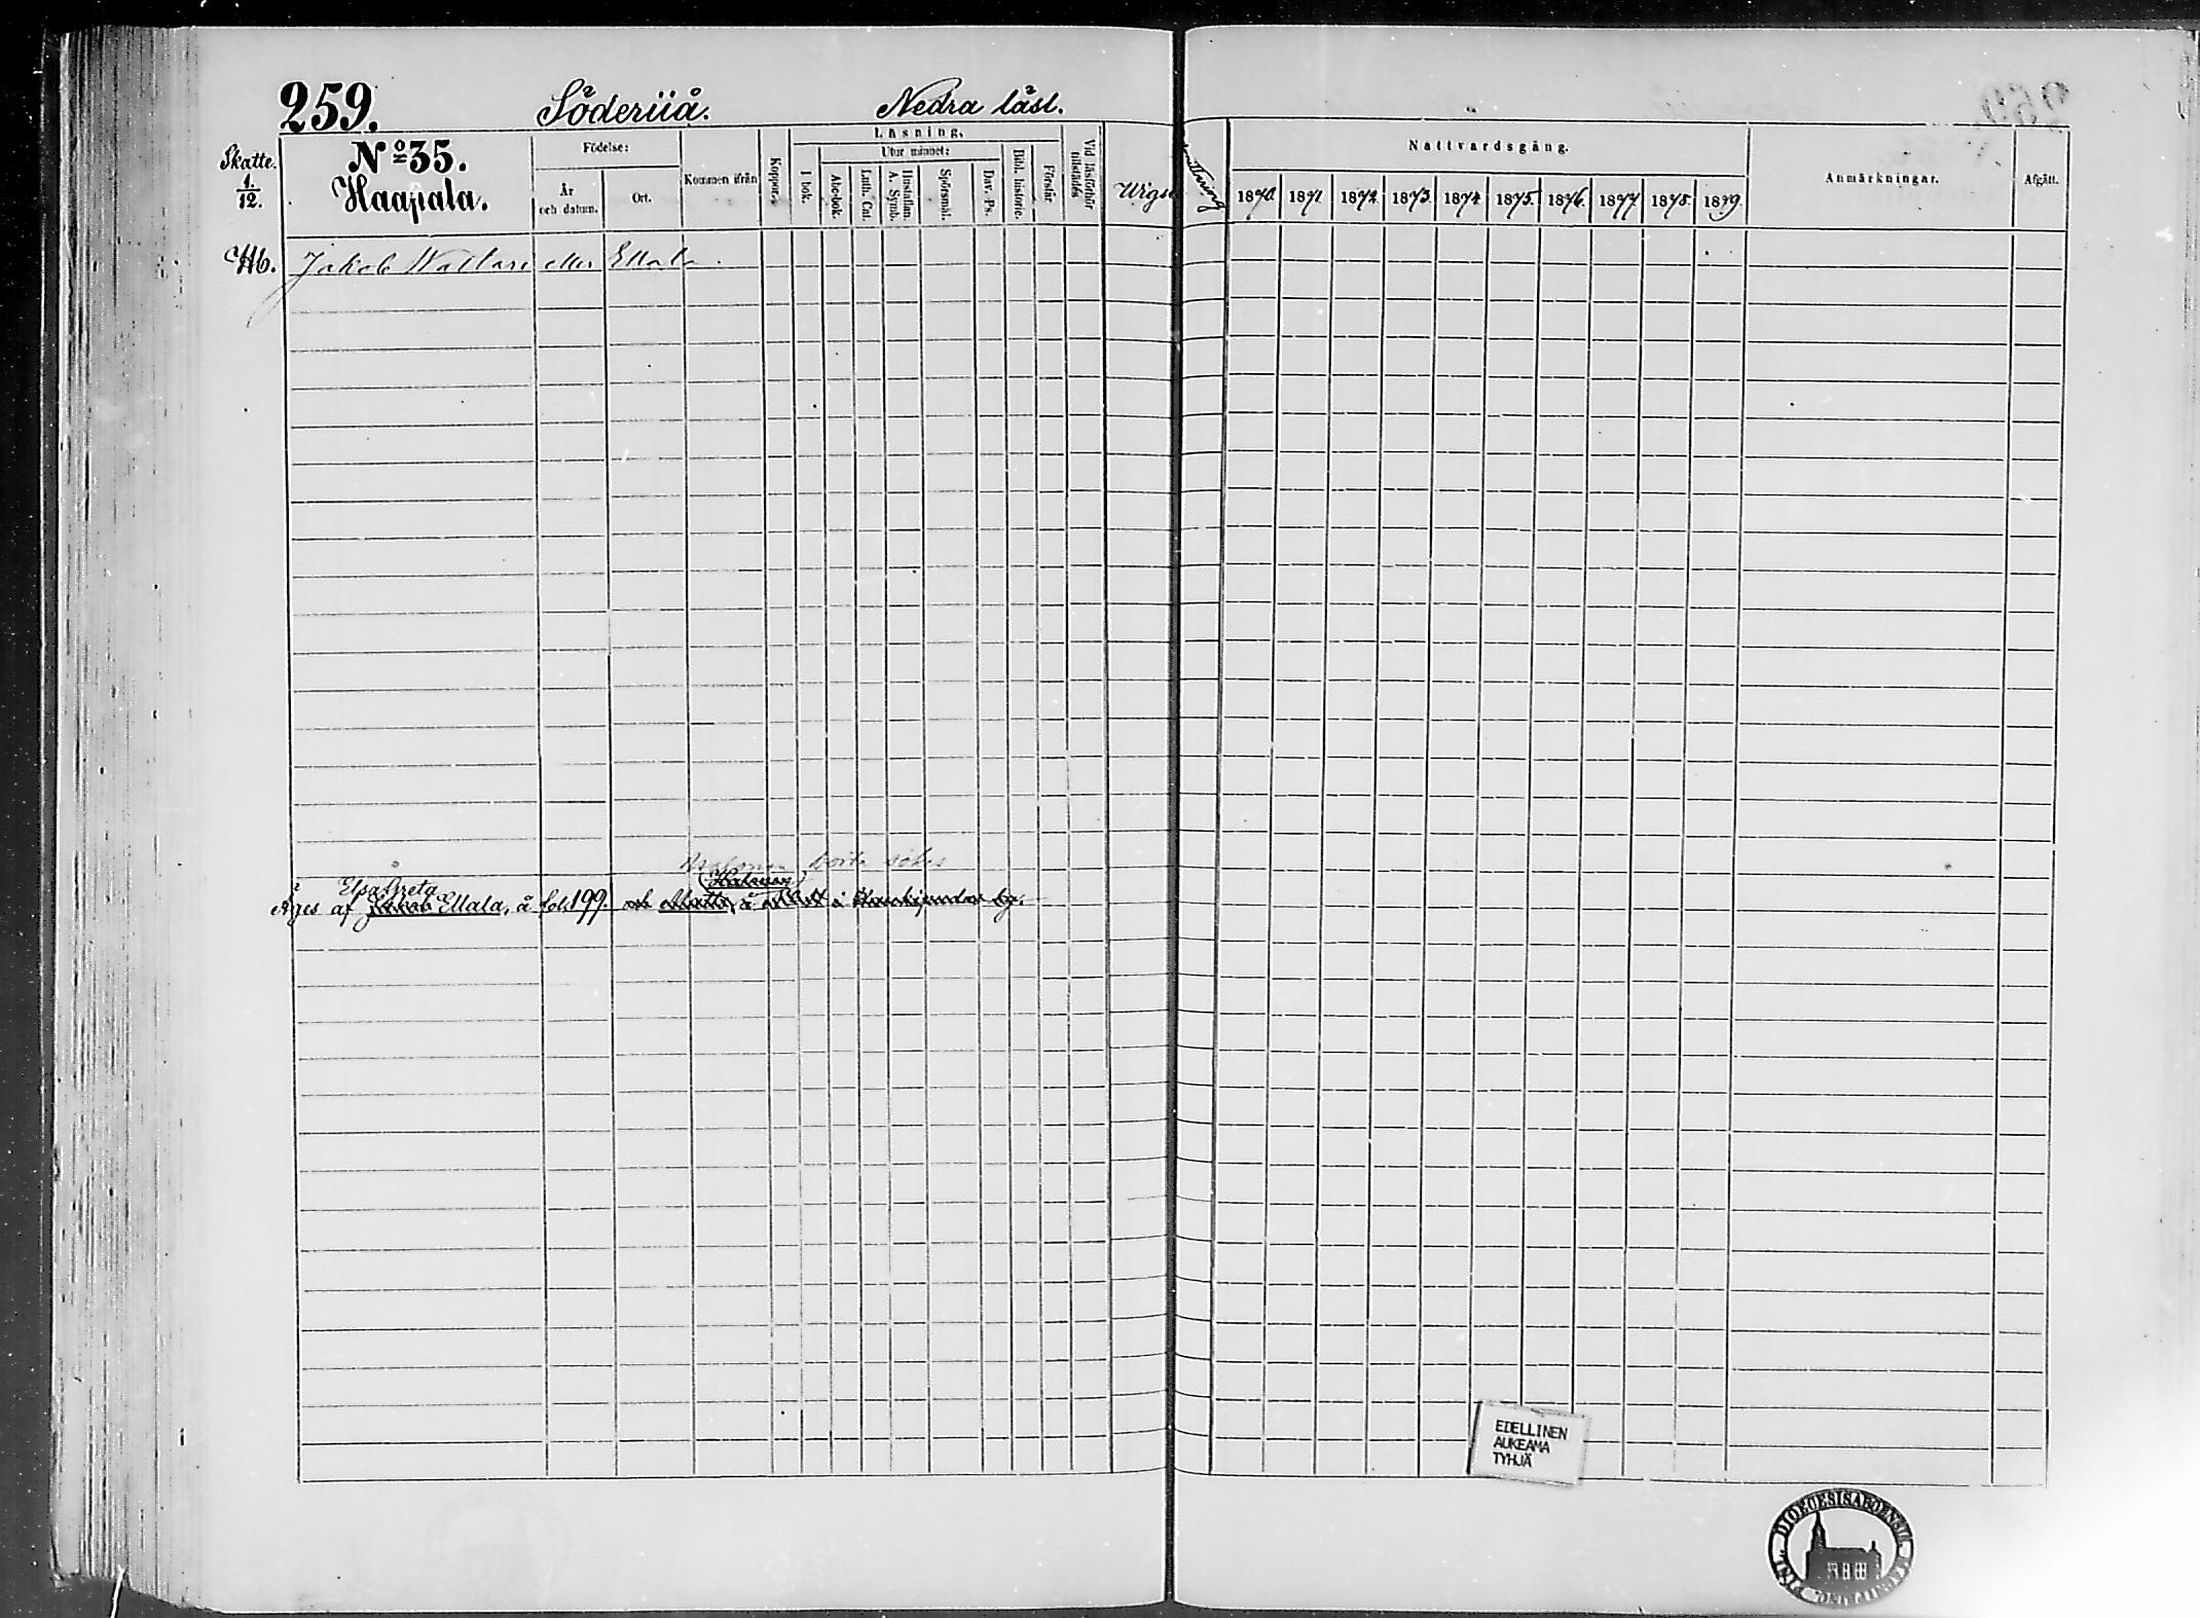 259. Söderiiå. Nedra läsl.
Skatte. 1/12.
No 35.
Haapala.
Födelse:
År och datum.
Ort.
Kommen ifrån
Koppor.
Läsning.
I bok.
Utur minnet:
Abc-bok.
Luth. Cat.
Hustaflan. A. Symb.
Spörsmål.
Dav. Ps.
Bibl. historie.
Förstår.
Vid läsförhör tillstädes
Nattvardsgång.
1870. 1871. 1872. 1873. 1874. 1875. 1876. 1877. 1878. 1879.
Anmärkningar.
Afgått.
Hb. Jakob Wallari eller Ellala.
Elsa Greta
Äges af Jakob Ellala, å fol. 199. och Matts
EDELLINEN
AUKEAMA
TYHJÄ